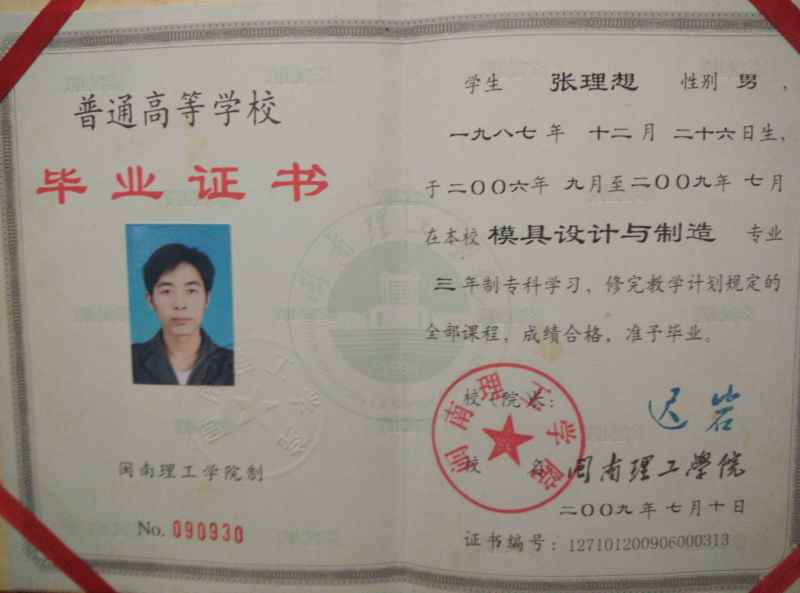 普通高等学校
毕业证书
闽南理工学院制
No. 090930
学生 张理想 性别 男，
一九八七年 十二月 二十六日生，
于二〇〇六年 九月至二〇〇九年 七月
在本校 模具设计与制造 专业
三 年制专科学习，修完教学计划规定的
全部课程，成绩合格，准予毕业。
校（院）长： 迟岩
校 名： 闽南理工學院
闽南理工学院
二〇〇九年七月十日
证书编号：127101200906000313